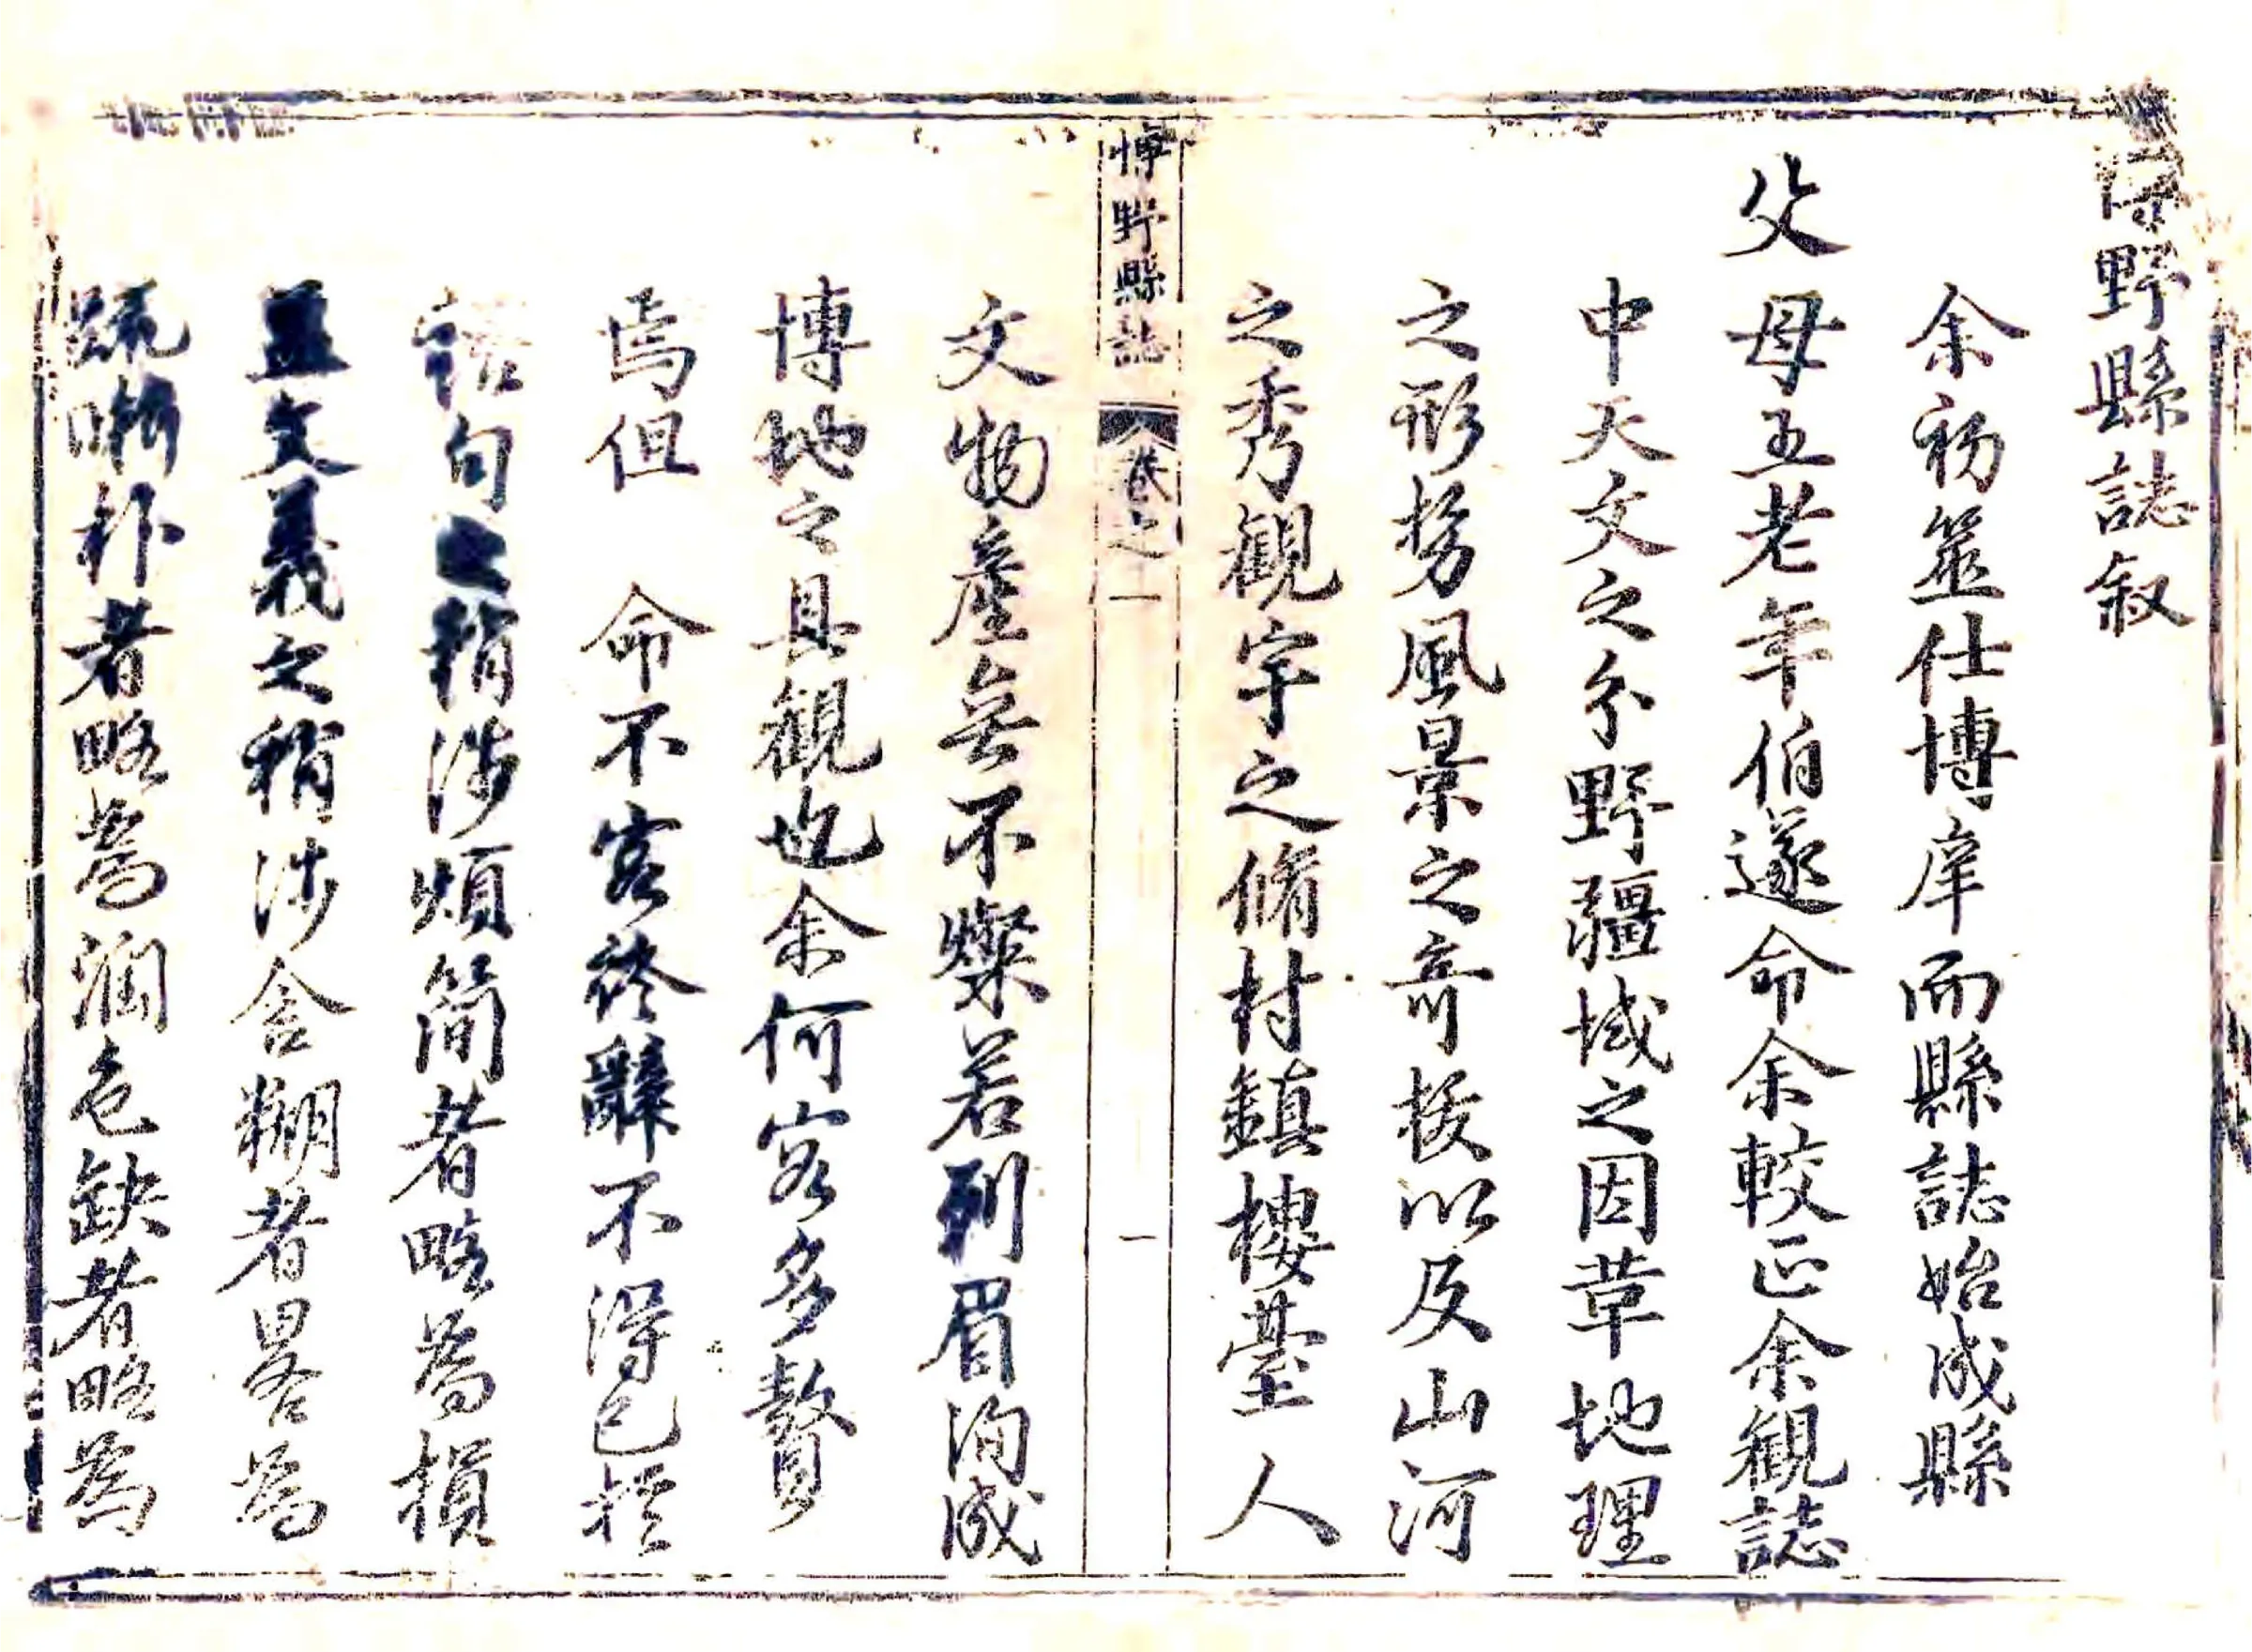 博野縣誌叙
余初筮仕博庠而縣誌始成縣
父母五老年伯遂命余較正余觀誌
中天文之分野疆域之因革地理
之形势風景之竒拔以及山河
之秀觀宇之脩村鎮樓臺人
博野縣誌
卷之一
一
文物產無不燦若列眉洵成
博地之具觀也余何容多贅
焉但 命不容終辭不得已
語句之稍涉煩簡者略為損
益文義之稍涉含糊者畧為
者略為润色缺者略為